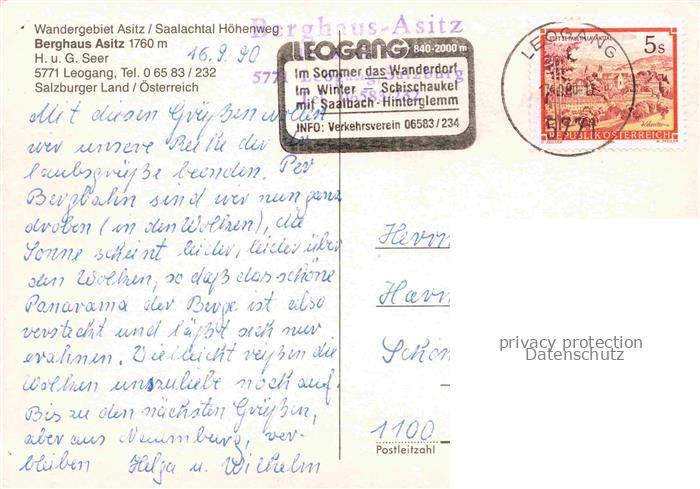 Wandergebiet Asitz / Saalachtal Höhenweg
Berghaus Asitz 1760 m
H. u. G. Seer
5771 Leogang, Tel. 0 65 83 / 232
Salzburger Land / Österreich
16.9.90
Berghaus-Asitz
5771 Leogang/Salzburg
LEOGANG 840-2000 m
Im Sommer das Wanderdorf
im Winter – Schischaukel
mit Saalbach-Hinterglemm
INFO: Verkehrsverein 06583/234
LEOGANG
5771
STIFT ST. PAUL IM LAVANTTAL
5 s
REPUBLIK ÖSTERREICH
Mit diesen Grüßen wollen
wir unsere Reihe der Ur
laubsgrüße beenden. Per
Bergbahn sind wir nun ganz
droben (in den Wolken), die
Sonne scheint leider, leider über
den Wolken, so daß das schöne
Panorama der Berge ist also
versteckt und läßt sich nur
erahnen. Vielleicht reißen die
Wolken uns zuliebe noch auf.
Bis zu den nächsten Grüßen,
aber aus Naumburg, ver-
bleiben Helga u. Wilhelm
Herrn
Schön
1100
Postleitzahl
privacy protection
Datenschutz